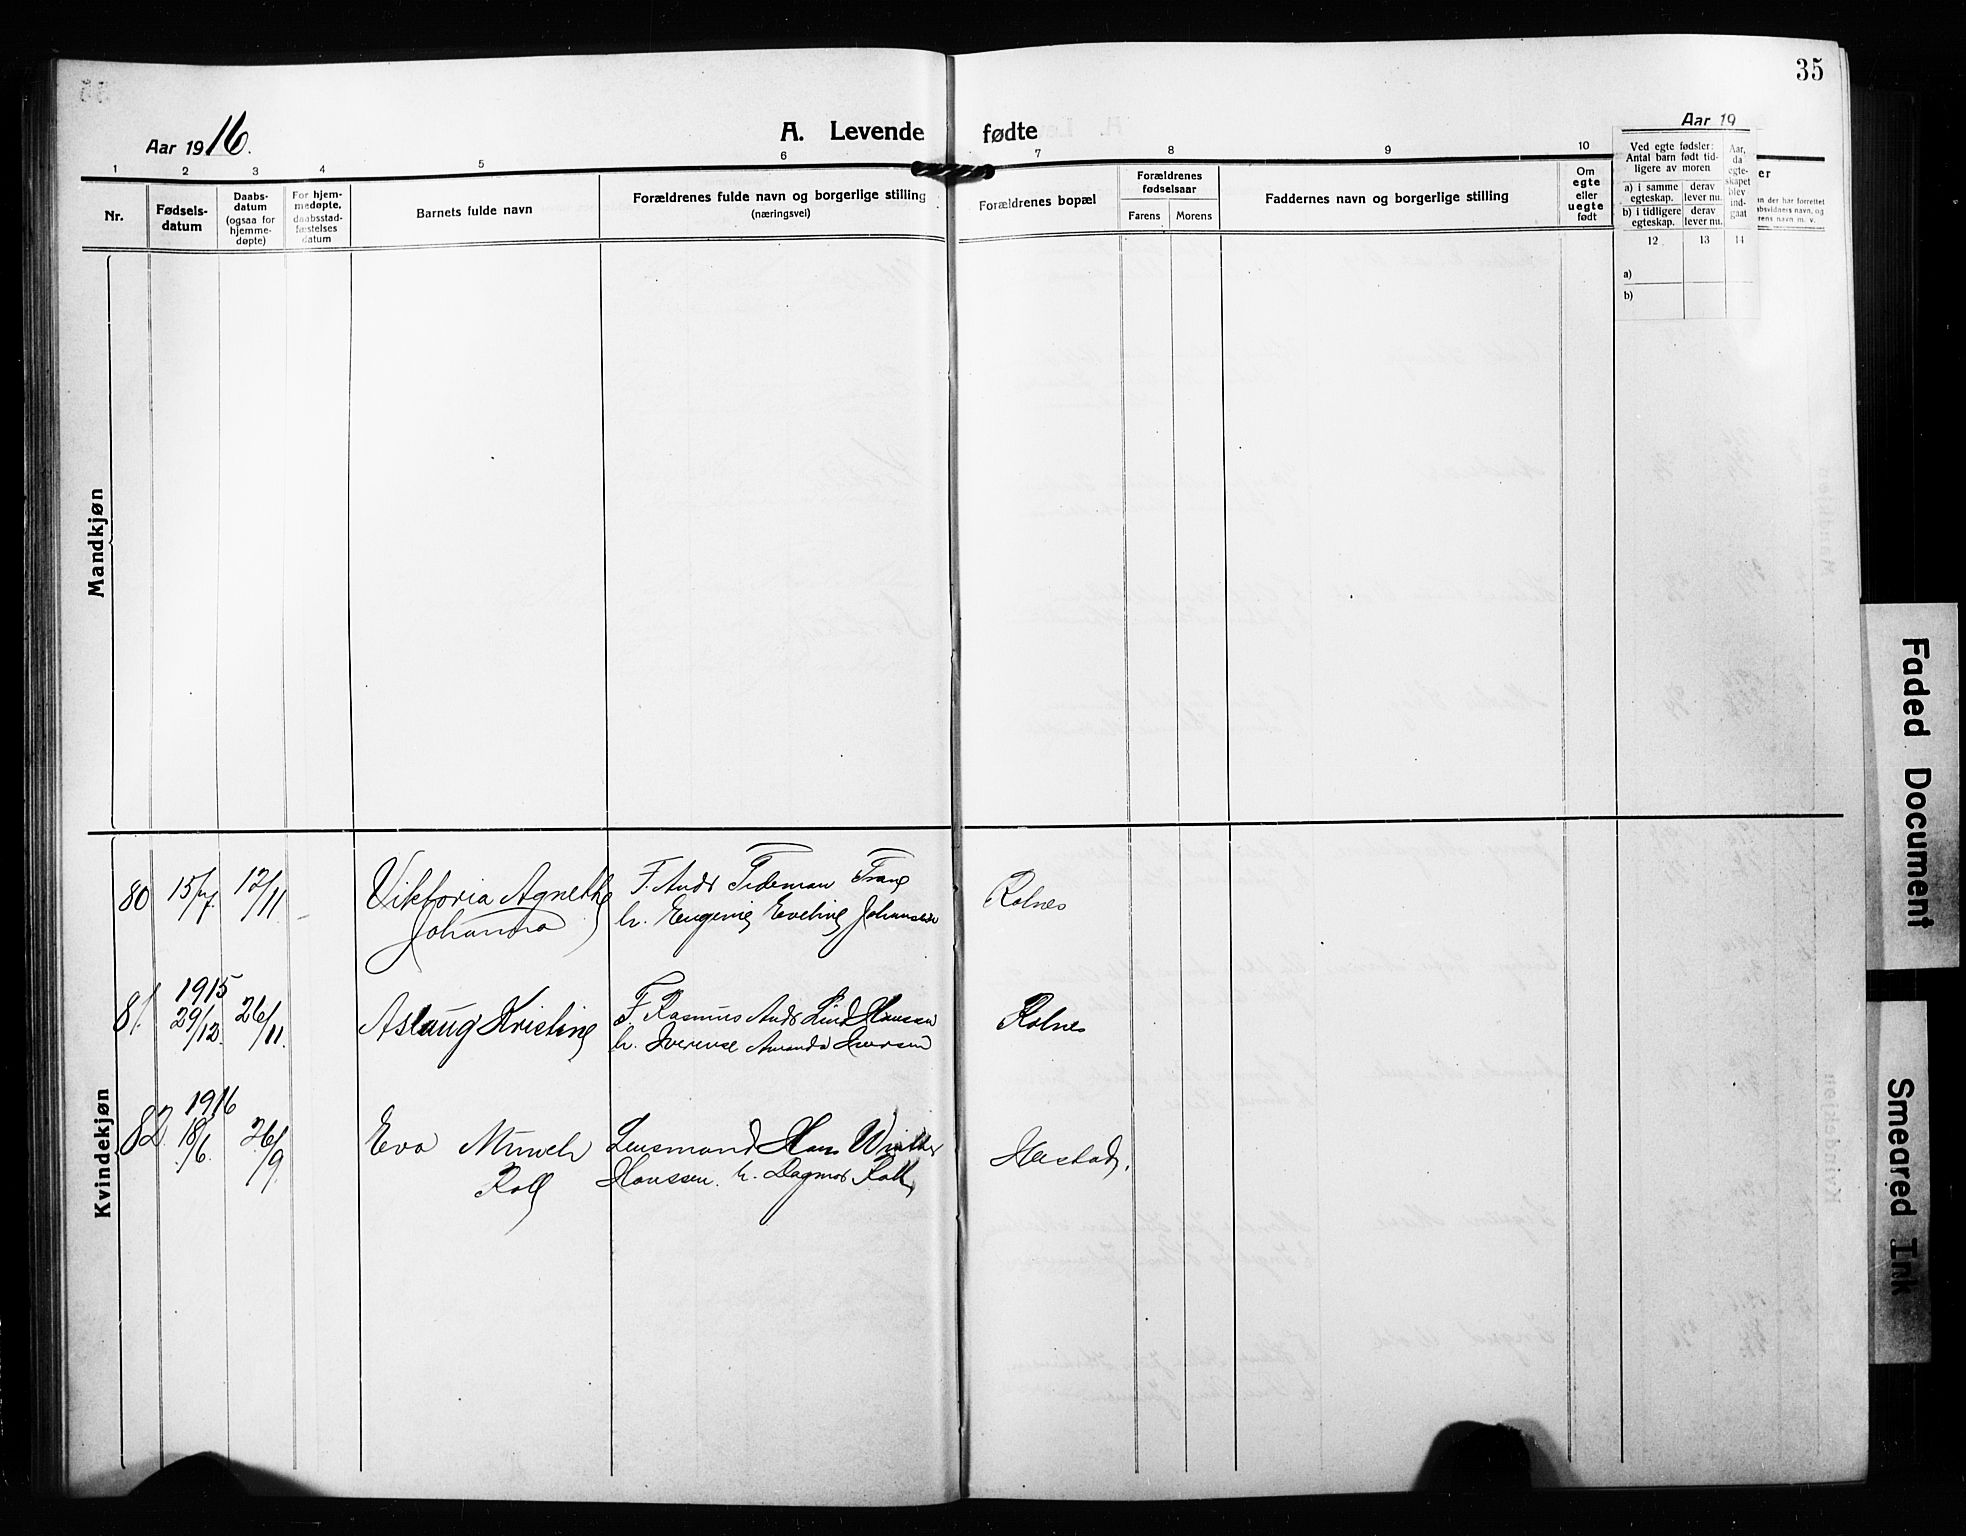 35
Aar 1916.
A. Levende fødte
Aar 19
1 2 3 4 5 6 7 8 9 10
Nr.
Fødsels-
datum
Daabs-
datum
(ogsaa for
hjemme-
døpte)
For hjem-
medøpte,
daabsstad-
fæstelses
datum
Barnets fulde navn
Forældrenes fulde navn og borgerlige stilling
(næringsvei)
Forældrenes bopæl
Forældrenes
fødselsaar
Farens Morens
Faddernes navn og borgerlige stilling
Om
egte
eller
uegte
født
Ved egte fødsler:
Antal barn født tid-
ligere av moren
a) i samme
egteskap.
derav
lever nu.
b) i tidligere
egteskap.
derav
lever nu.
Aar,
da
egte-
skapet
blev
ind-
gaat
12 13 14
a)
b)
Mandkjøn
Kvindekjøn
80 15/7. 12/11 Viktoria Agnethe F. Andr Tideman
Johanna h. Eugenie Eveline Johansen
Rolnes
1915
81. 29/12. 26/11. Aslaug Kristine F. Rasmus Andr Lind Hansen
h. Iverense Amanda Iversen
Rolnes
1916
82. 18/6. 26/9. Eva Münch Lensmand Hans Winther
Roll Hanssen. h. Dagmar Roll
Harstad.
Faded Document
Smeared Ink